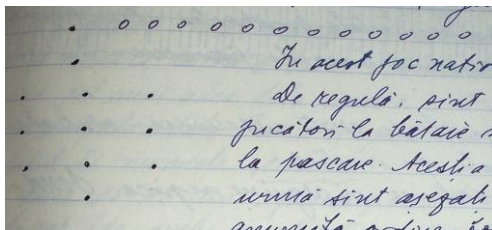 In acest joc natio
De regulă, sint
jucători la bătaie
la pascare. Acestia
urmă sint asezati